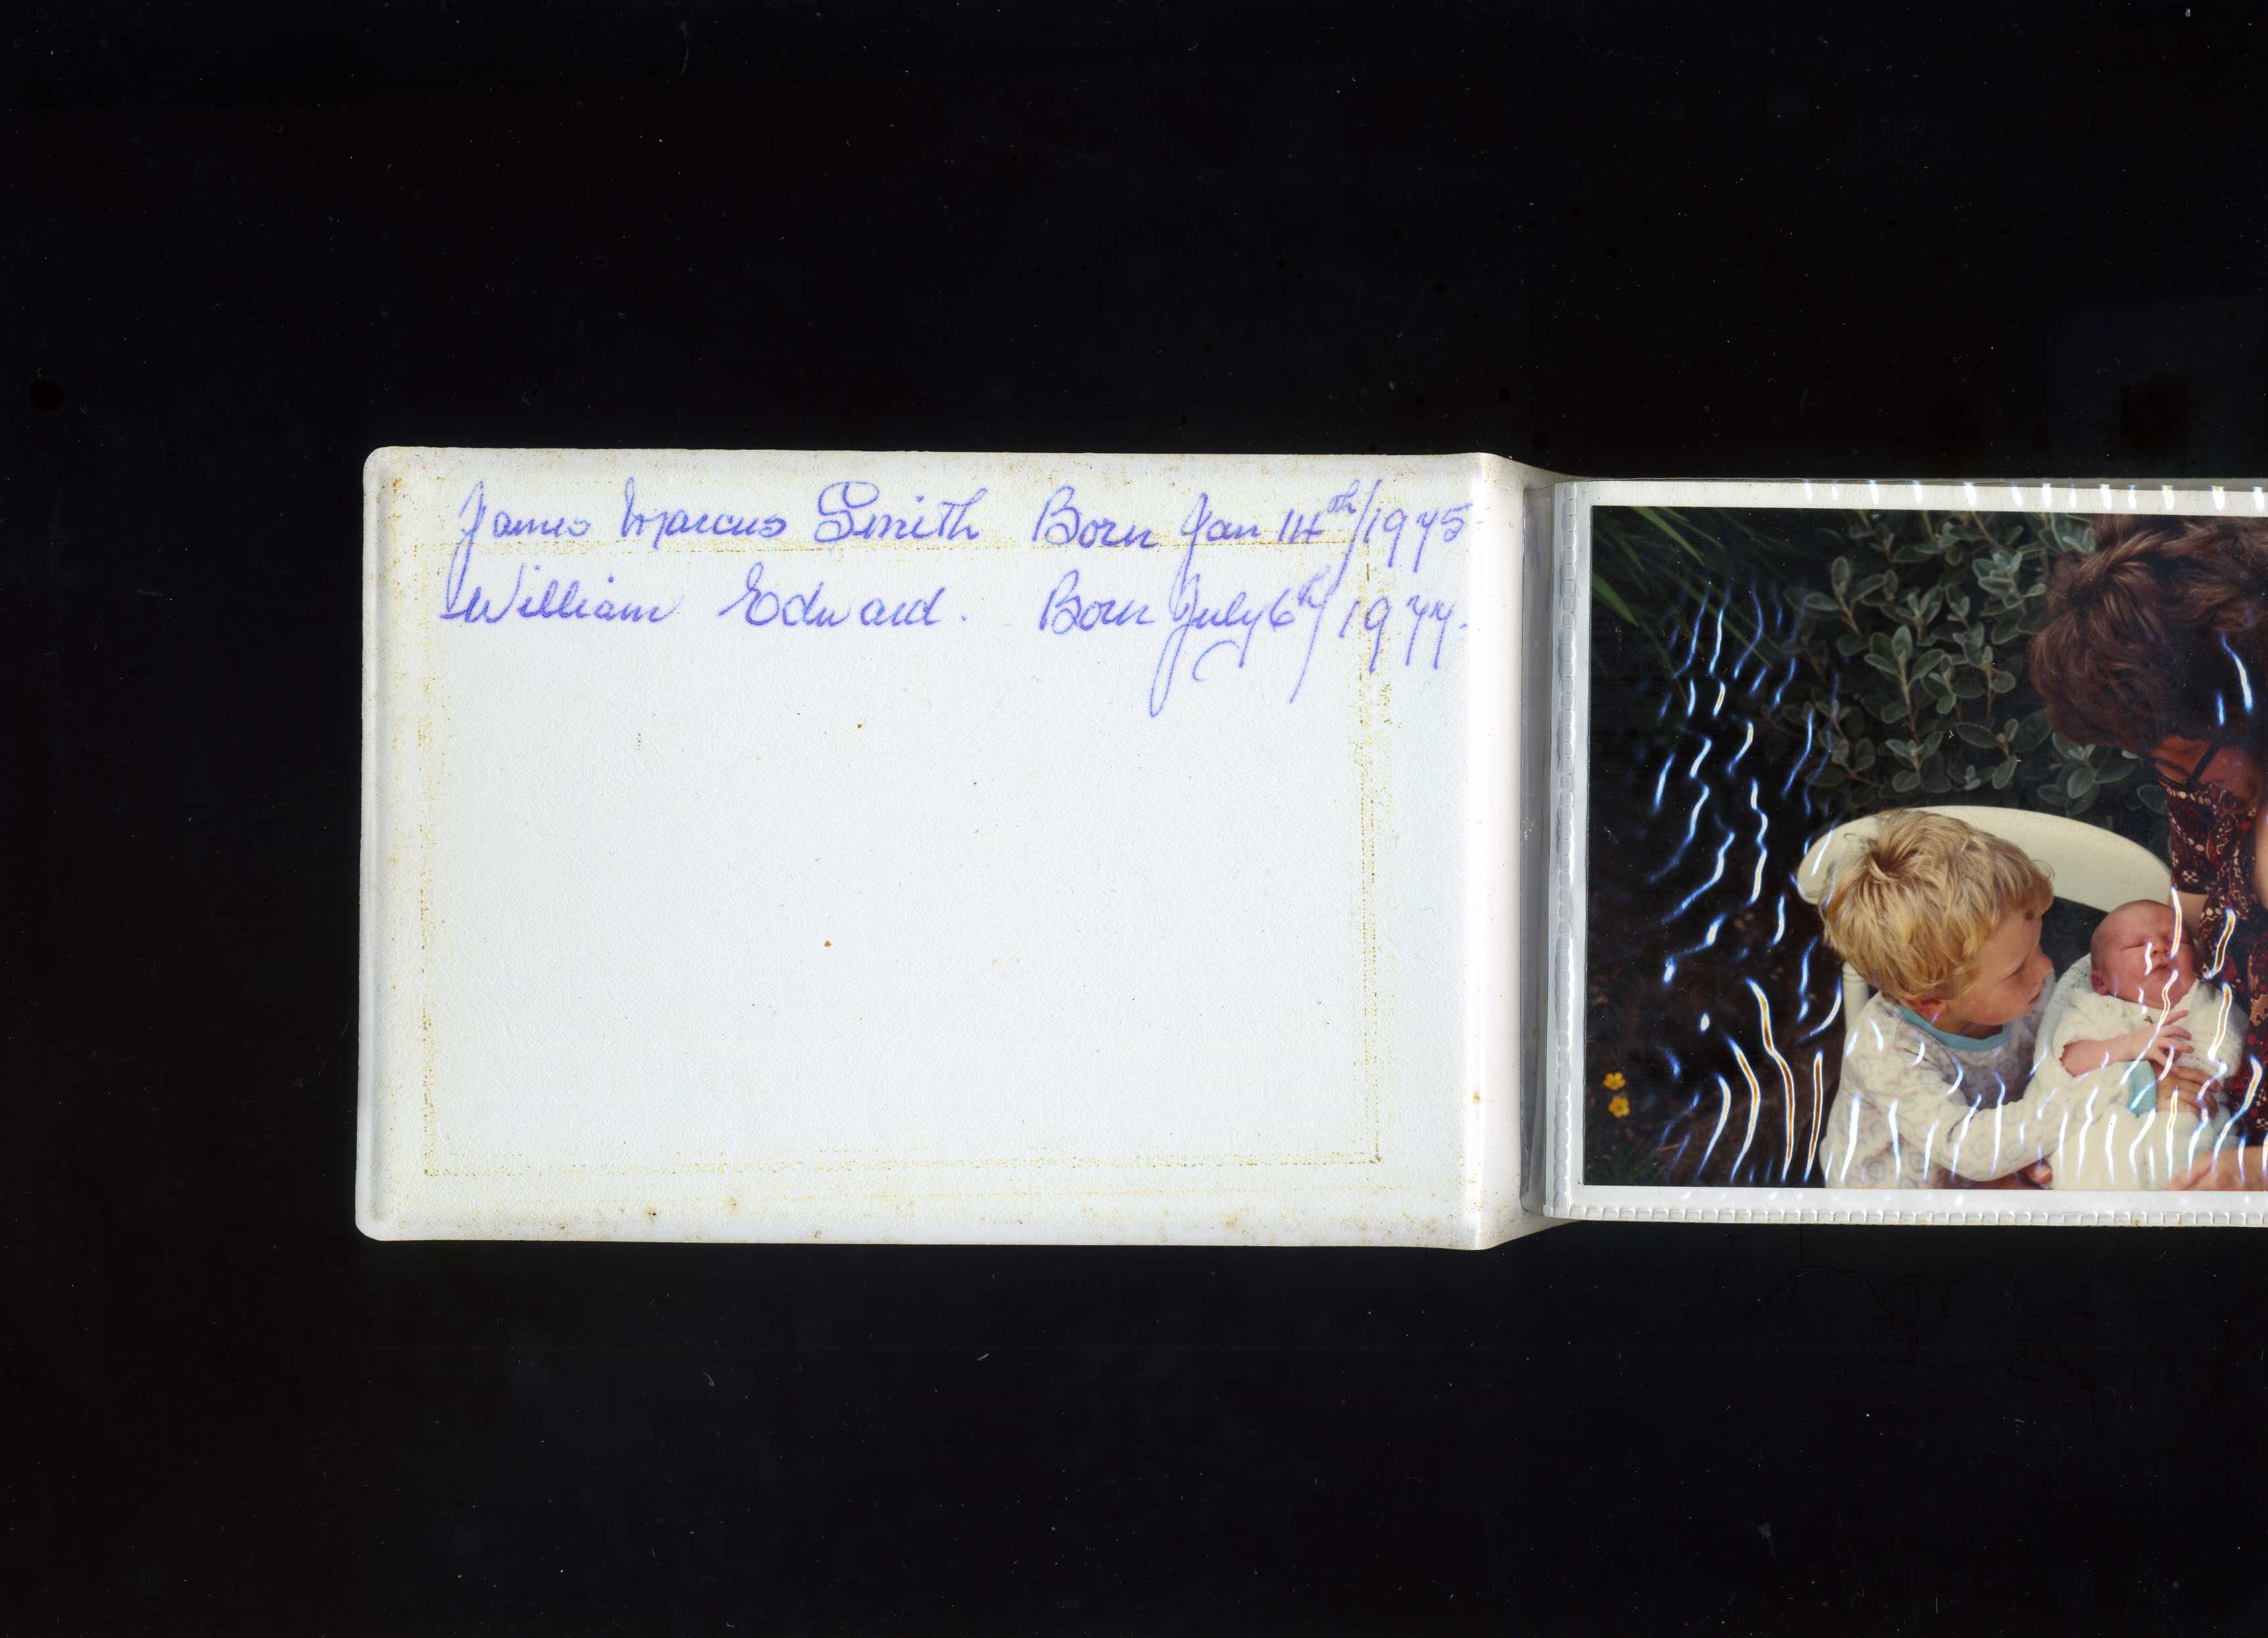 James Marcus Smith Born Jan 14th/1975
William Edward. Born July 6th/1977.